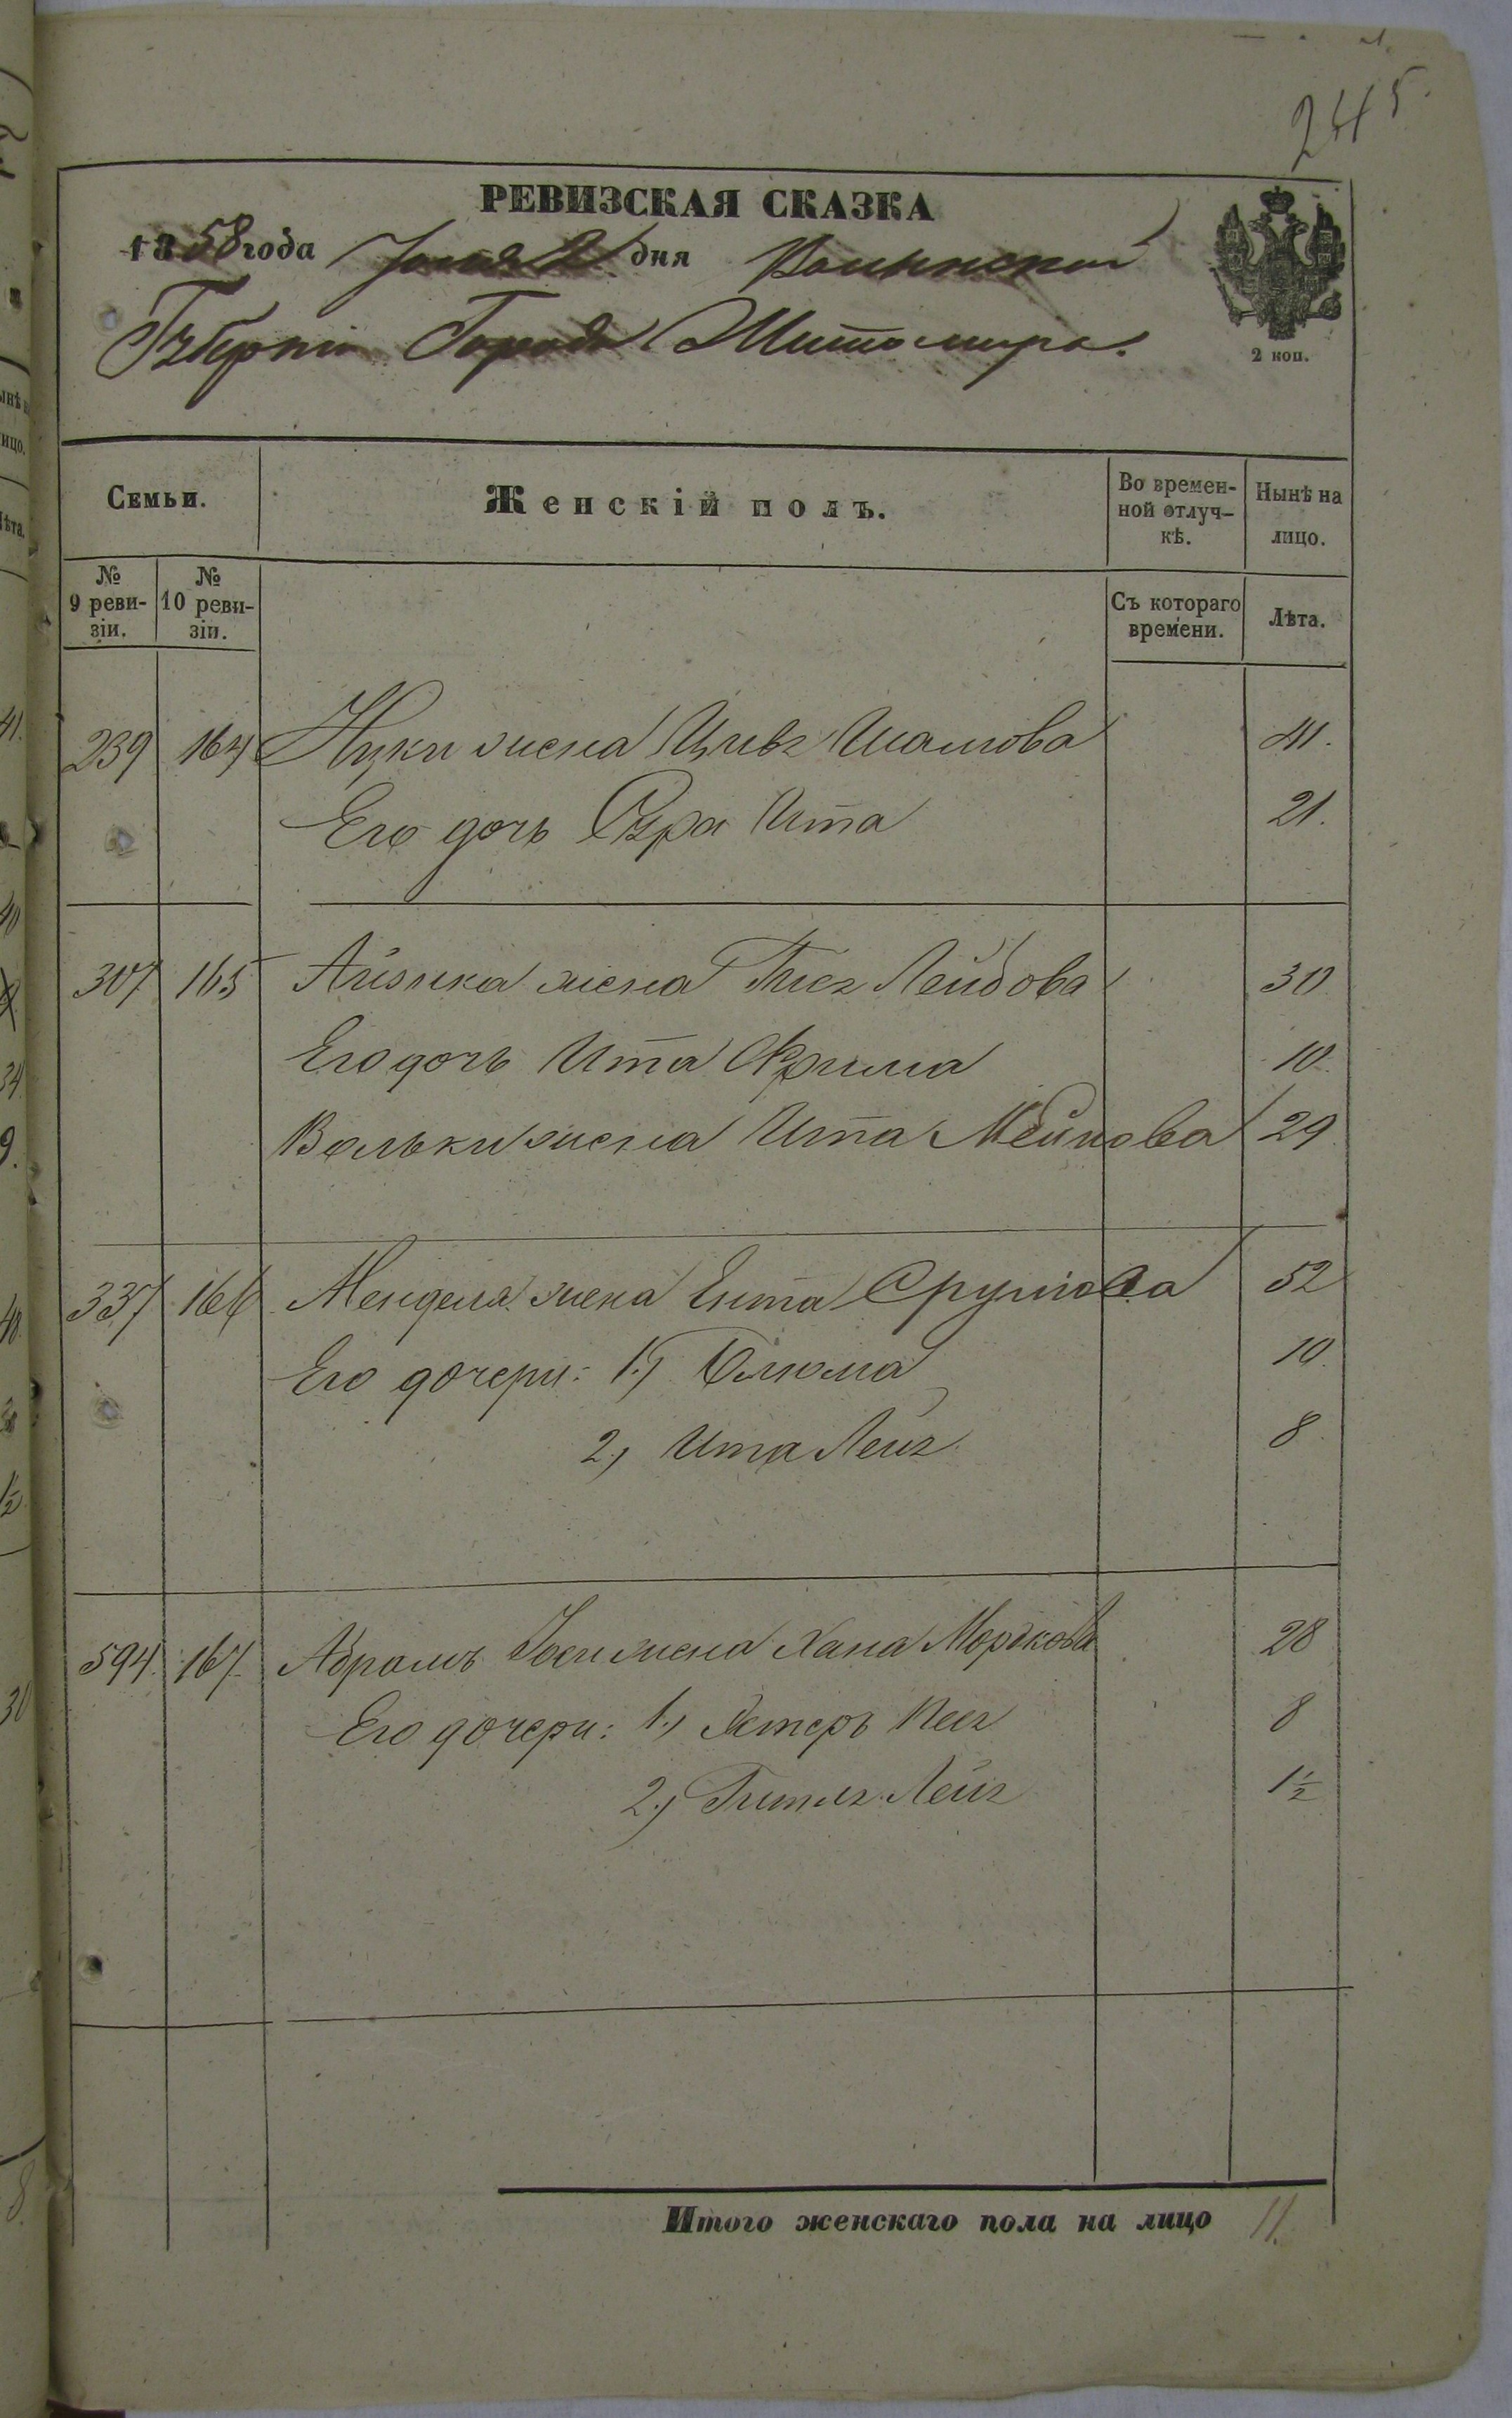 245.
РЕВИЗСКАЯ СКАЗКА
1858 года Іюня 2 дня Волынской
Губерніи Города Житомира.
2 коп.
Семьи. Женскій полъ. Во времен- Нынѣ на
ной отлуч- лицо.
кѣ.
№ № Съ котораго Лѣта.
9 реви- 10 реви- времени.
зіи. зіи.
239 164 жена Цивя 41.
Его дочь Сура Ита 21.
307 165 Айзика жена Лейбова 30
Его дочь Ита Фрима 10.
Вольки жена Ита 29
337 166 Менделя жена Ента Срулiова 52
Его дочери: 1) Блюма 10.
2) Ита Лея 8
594. 167. Абрамъ Іоси жена Хана Мордкова 28
Его дочери: 1) Эстеръ Песя 8
2) Гитля Лея 1½
Итого женскаго пола на лицо 11.